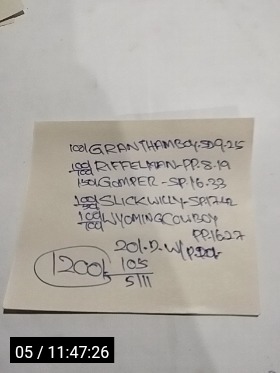 100/ GRANTHAMBOY-SD9-2/5
100/100 RIFFELMAN-PP.8-19
150/ GOMPER-SP.16.33
100/ SLICKWILLY-SP
100/100 WYOMINGCOWBOY
PP.16.27
20/.D.W/
1200/-
105
5111
05 / 11:47:26